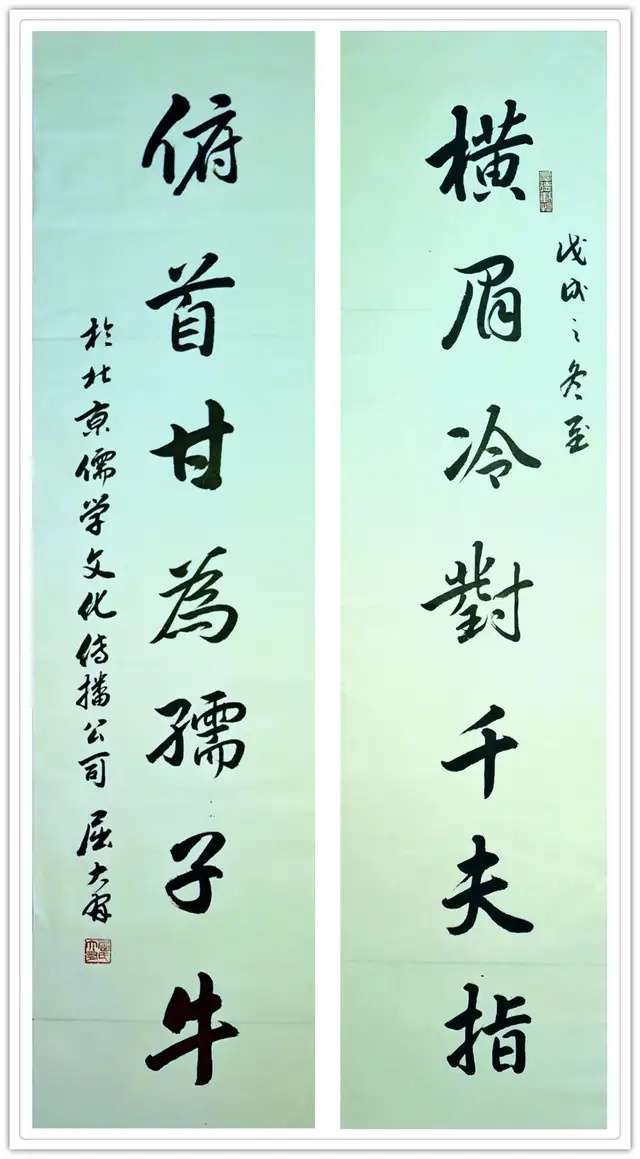 戊戌之冬至
横眉冷對千夫指
俯首甘為孺子牛
於北京儒学文化傳播公司 屈大